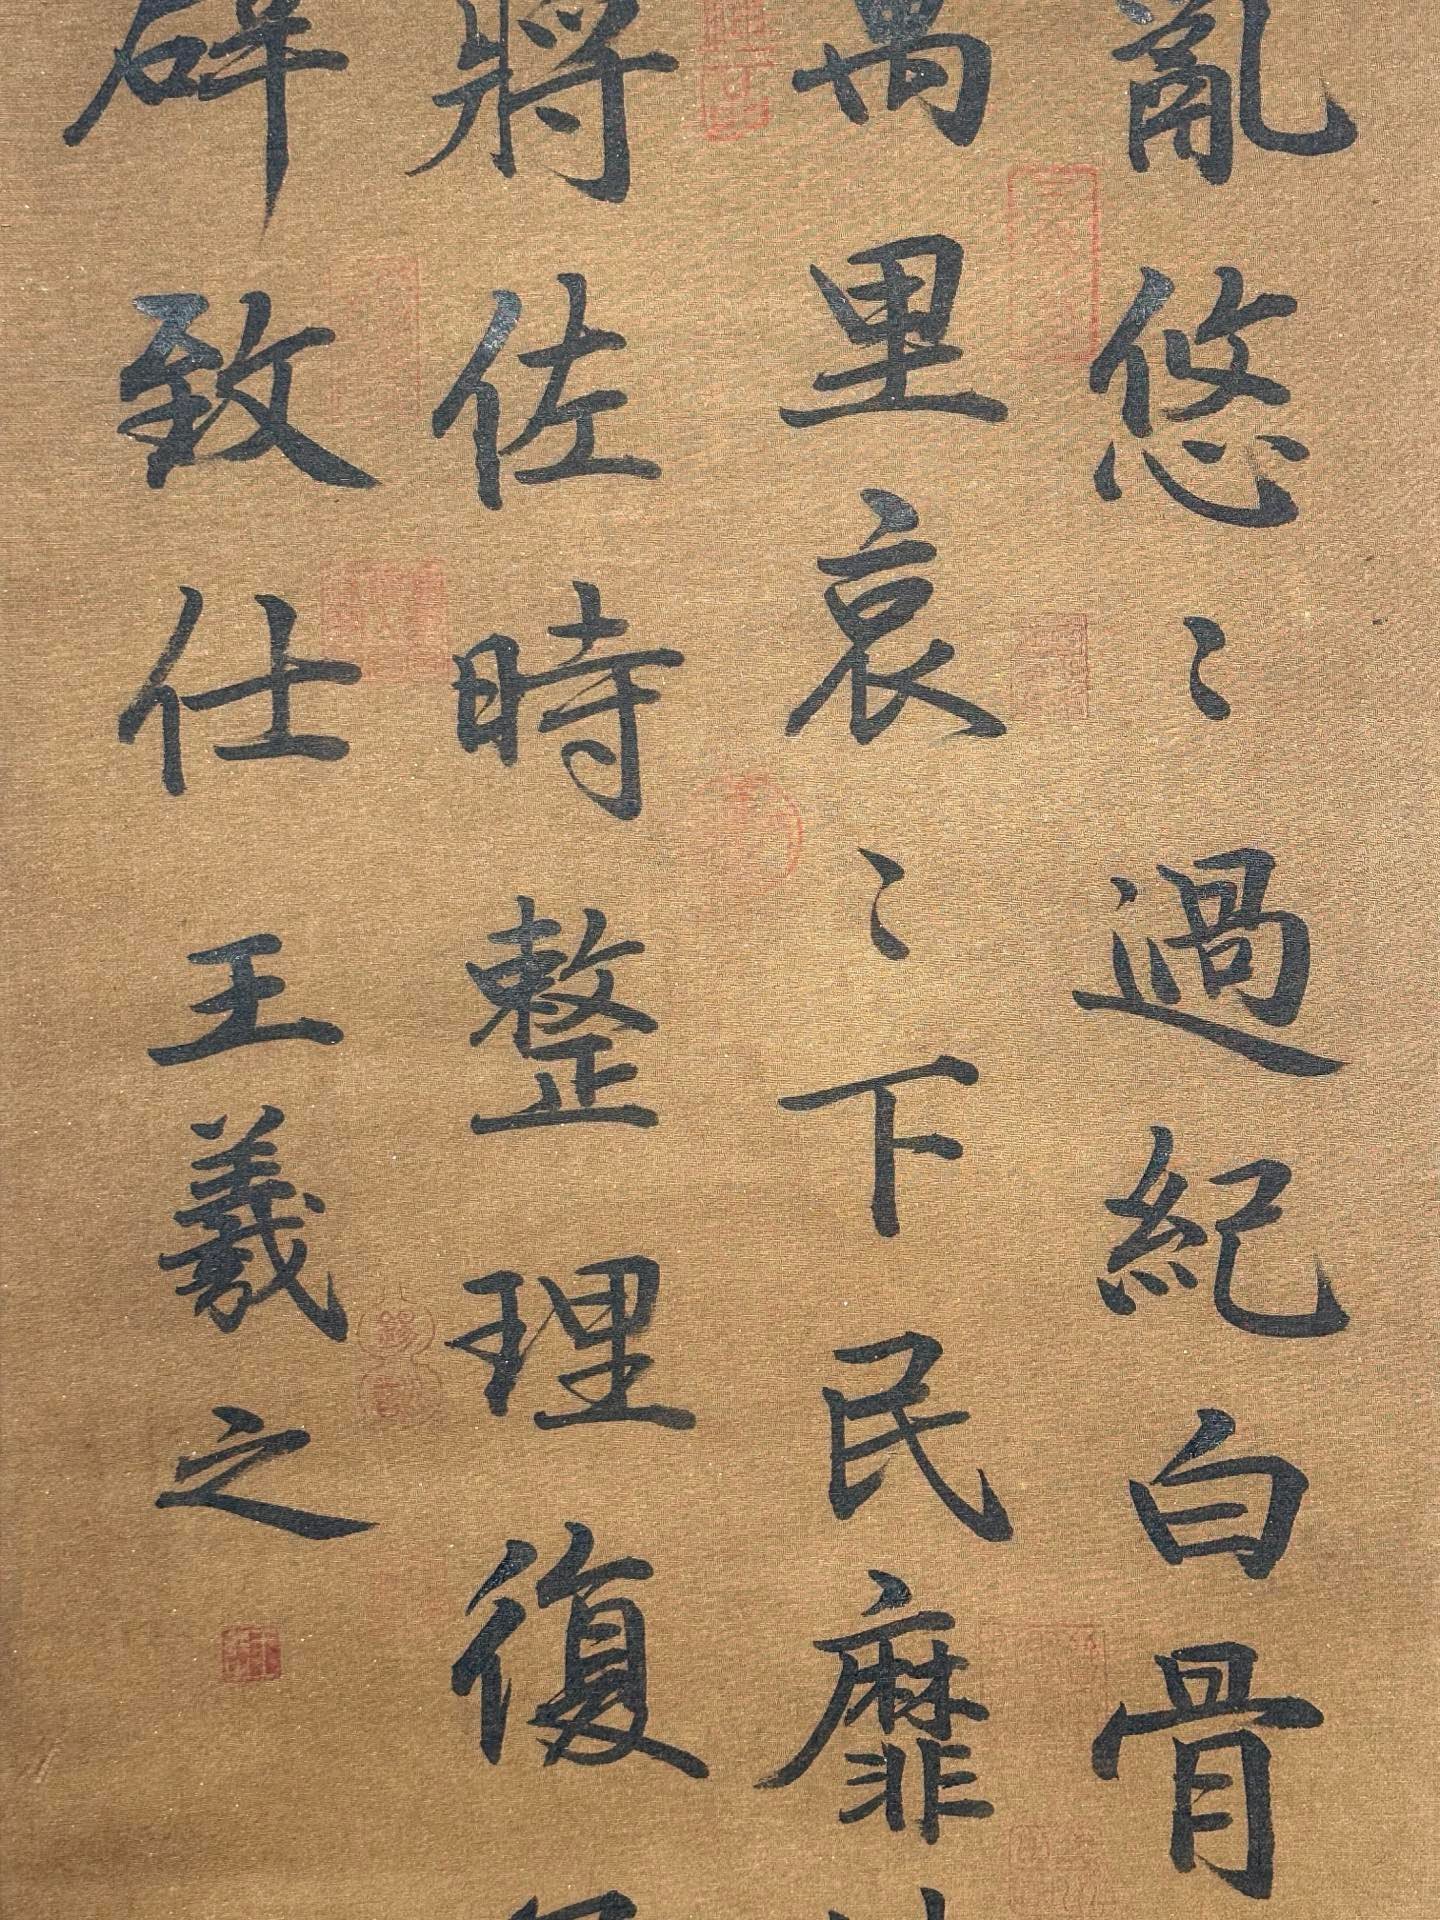 亂悠〻過紀白骨
萬里哀〻下民靡
將佐時整理復
辟致仕王羲之